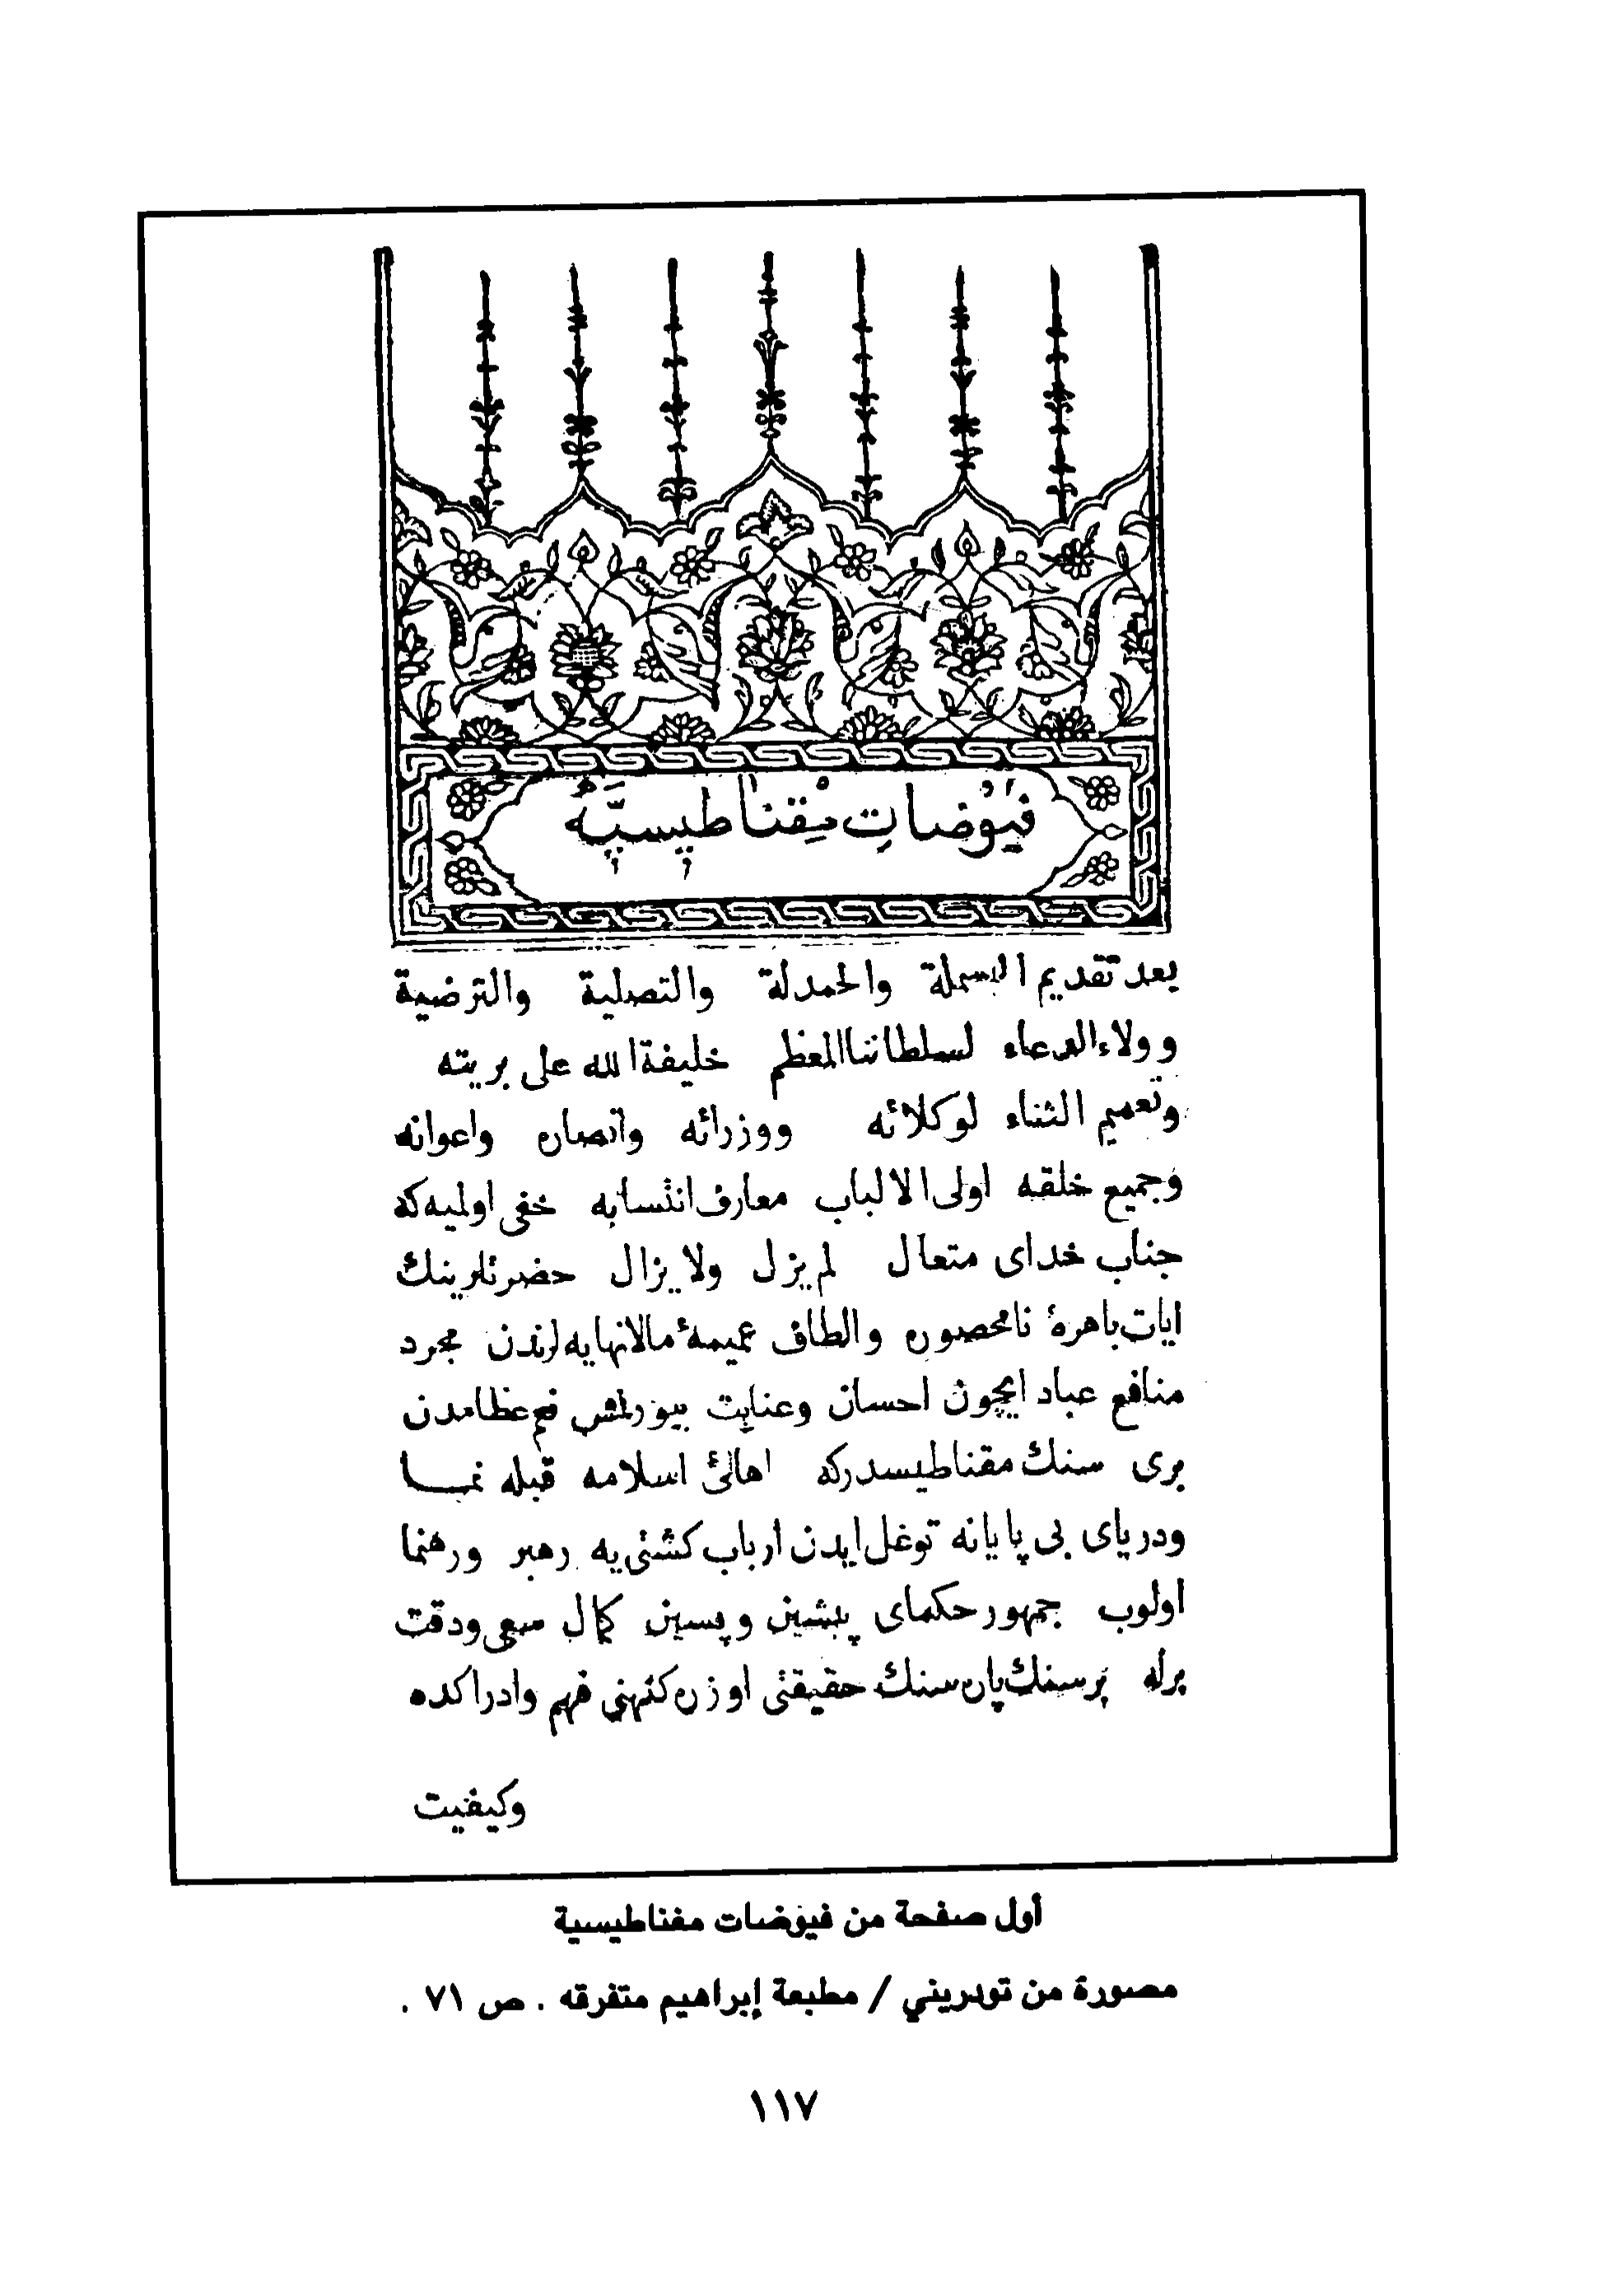 فيوضات مقناطيسيه
بعد تقديم البسملة والحمدلة والتصلية والترضية
وولاء الدعاء لسلطاننا المعظم خليفة الله على بريته
وتعميم الثناء لوكلائه ووزرائه وانصاره واعوانه
وجميع خلقه اولى الالباب معارف انتسابه خفى اولميه كه
جناب خداى متعال لم يزل ولا يزال حضرتلرينك
ايات باهرهٔ نامحصوره والطاف عميمهٔ مالانهايه لرندن مجرد
منافع عباد ايچون احسان وعنايت بيورلمش نعم عظامدن
برى سنك مقناطيسدركه اهالئ اسلامه قبله نمـــا
ودرياى بى پايانه توغل ايدن ارباب كشتى يه رهبر ورهنما
اولوب جمهور حكماى پيشين وپسين كمال سعى ودقت
برله بر سنك پاره سنك حقيقتى اوزره كنهنى فهم وادراكده
وكيفيت
أول صفحة من فيوضات مغناطيسية
مصورة من تودريني / مطبعة إبراهيم متفرقه . ص ٧١ .
١١٧